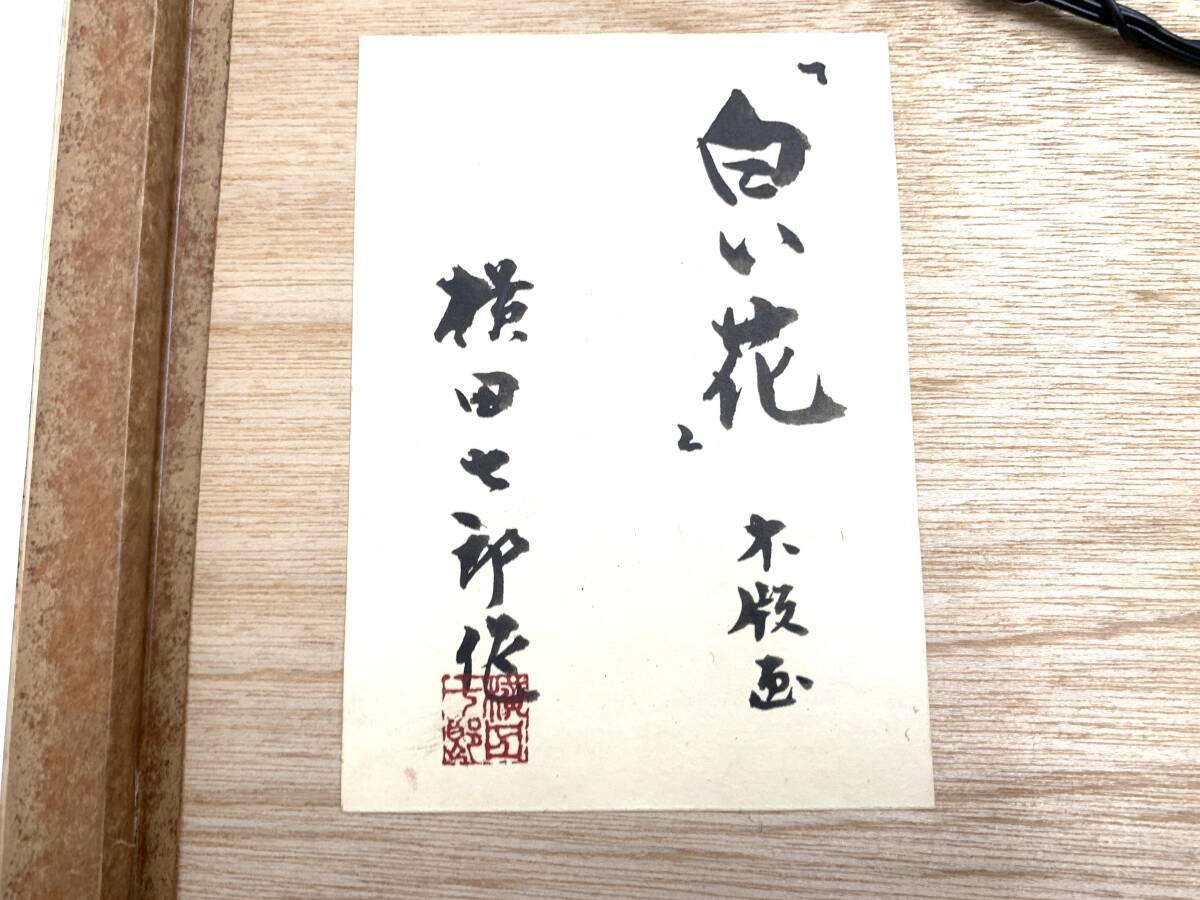 「白い花」 木版画
横田七郎作
横田七郎